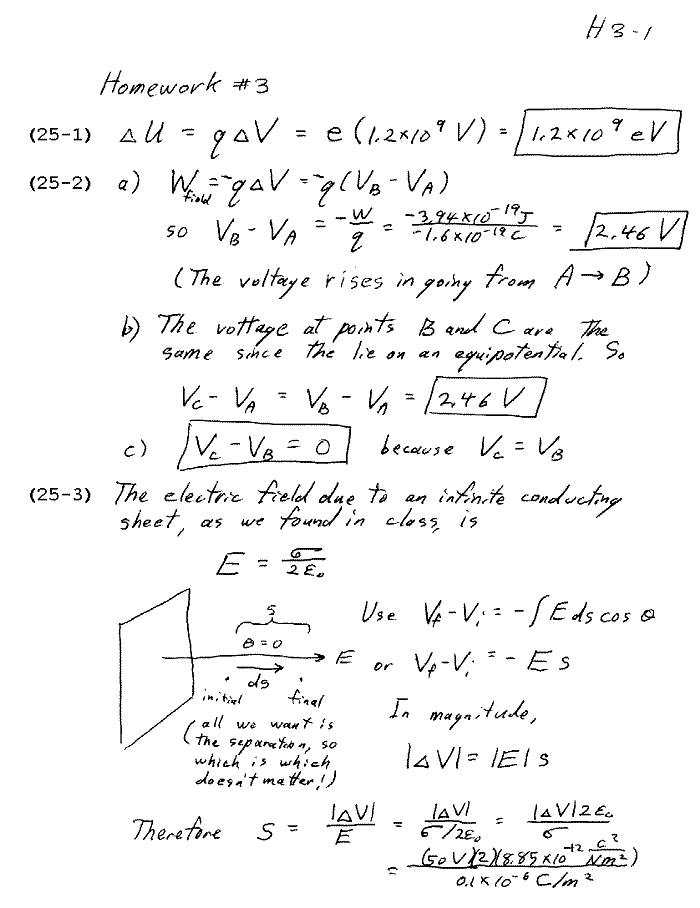 H3-1
Homework #3
(25-1) ΔU = qΔV = e(1.2×10⁹ V) = 1.2×10⁹ eV
(25-2) a) W_field = -qΔV = -q(V_B - V_A)
so V_B - V_A = -W/q = -3.94×10⁻¹⁹J / -1.6×10⁻¹⁹C = 2.46 V
(The voltage rises in going from A → B)
b) The voltage at points B and C are the
same since the lie on an equipotential. So
V_C - V_A = V_B - V_A = 2.46 V
c) V_C - V_B = 0 because V_C = V_B
(25-3) The electric field due to an infinite conducting
sheet, as we found in class, is
E = σ/2ε₀
s
θ=0
E
ds
initial final
(all we want is
the separation, so
which is which
doesn't matter!)
Use V_f - V_i = -∫E ds cos θ
or V_f - V_i = -E s
In magnitude,
|ΔV| = |E| s
Therefore S = |ΔV|/E = |ΔV|/σ/2ε₀ = |ΔV|2ε₀/σ
= (50 V)(2)(8.85×10⁻¹² C²/Nm²) / 0.1×10⁻⁶ C/m²